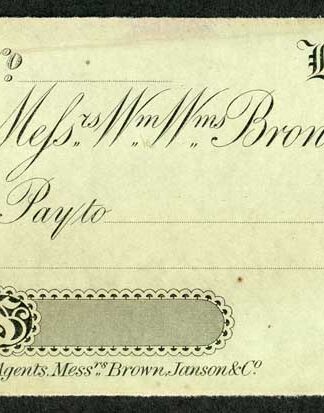 No
Messrs Wm Wms Bron
Pay to
£
Agents, Messrs Brown, Janson & Co